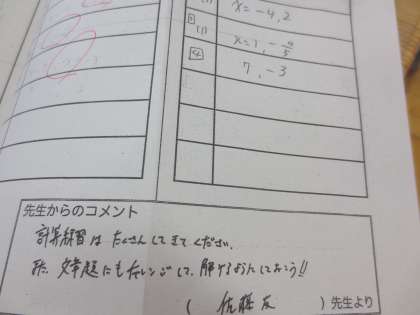 x = -4, 2
3
(1)
x = 1, -4/5
4
7, -3
先生からのコメント
計算練習は たくさんしてきてください。
また、文章題にもチャレンジして、解けるようにしておこう!!
( 佐藤友 ) 先生より